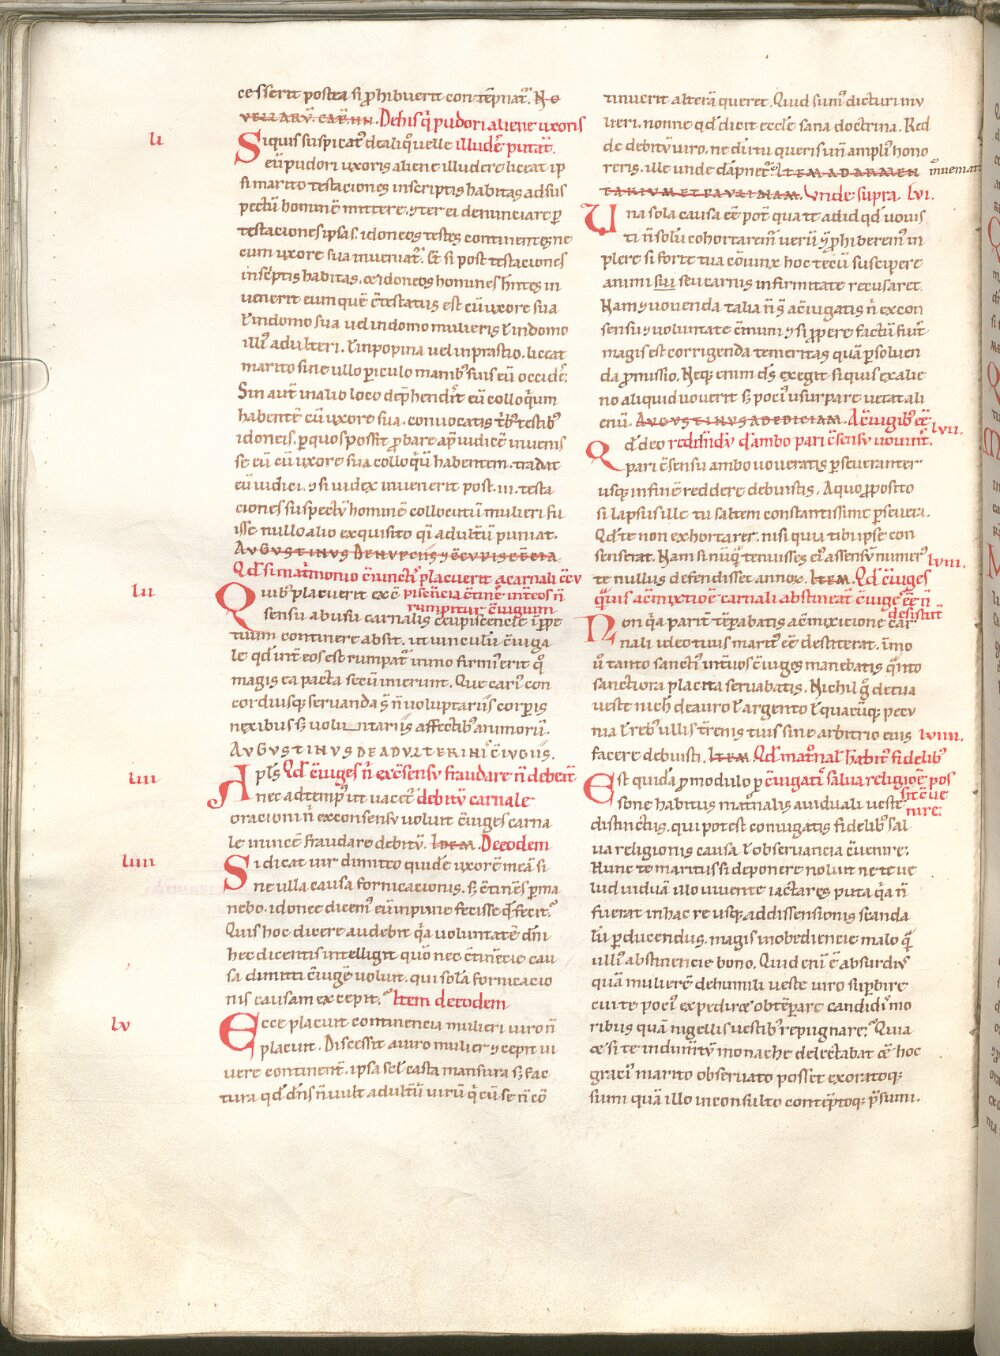 cesserit postea si ꝓhibuerit contẽpnat᷑. No
uellarũ. car. iiii. De his q̃ pudori aliene uxoris
li
Siquis suspicat᷑ de aliq̃ uelle illudẽ putat᷑.
eũ pudori uxoris aliene illudere liceat ip
si marito testaciones in scriptis habitas ad sus
pectũ hominẽ mittere. ⁊ ter ei denunciare ꝑ
testaciones ipsas. idoneos testes continentes ne
cum uxore sua inueniat᷑. Et si post testaciones
inscriptis habitas. et idoneos homines hñtes in
uenerit eum quẽ c̃testatus est cũ uxore sua
ł in domo sua uel in domo mulieris ł in domo
illiꝰ adulteri. ł in popina uel in prastio. liceat
marito sine ullo periculo manibꝰ suis eũ occidẽ.
Sin aut̃ in alio loco deꝑhendit̃ eũ colloq̃um
habentẽ cũ uxore sua. conuocatis tribꝰ testibꝰ
idoneis. ꝑ quos possit ꝓbare apud̃ iudicẽ inuenis
se eũ cũ uxore sua colloq̃ũ habentem. tradat
eũ iudici. ⁊ si iudex inuenerit post .iii. testa
ciones suspectũ hominẽ collocutũ mulieri fu
isse nullo alio exquisito qͥ adult̃iũ puniat.
Augustinus de nupciis ⁊ c̃cupiscẽcia
Qd̃ si matrimonio c̃iunctiꝰ placuerit a carnali c̃cu
lii
Quibꝰ placuerit ex c̃ piscẽcia c̃tinẽ int̃ eos ñ
rumpitur c̃iugium
sensu ab usu carnalis c̃cupiscencie ĩ ꝑpe
tuum continere absit. ut uinculũ c̃iuga
le qd̃ int̃ eos est rumpat᷑ immo firmiꝰ erit q̊
magis ea pacta secũ inierunt. Que cariꝰ con
cordiusq; seruanda s̃ ñ uoluptariis corꝑis
nexibus s; uoluntariis affectibꝰ animorũ.
Augustinus de adulterinis c̃iugiis.
liii
Apls̃ Qd̃ c̃iuges ñ ex c̃sensu fraudare ñ debent
nec ad tempꝰ ut uacet᷑ debitũ carnale
oracioni ñ ex consensu uoluit c̃iuges carna
le inuicẽ fraudare debitũ. Idem. De eodem
liiii
Si dicat uir dimitto quidẽ uxorẽ meã si
ne ulla causa fornicacionis. s; c̃tinẽs ꝑma
nebo. idonee dicemꝰ eũ inpune fecisse q̃ fecit?
Quis hoc dicere audebit q̃a uoluntatẽ dñi
hec dicentis intelligit quo nec c̃tinẽcie cau
sa dimitti c̃iugẽ uoluit. qui solã fornicacio
nis causam excepit. Item de eodem
lv
Ecce placuit continencia mulieri uiro ñ
placuit. Discessit a uiro mulier ⁊ cepit ui
uere continent̃. ipsa scł. casta mansura s; fac
tura qd̃ dñs ñ uult adult̃ũ uirũ q̃ cũ se ñ cõ
tinuerit alterã queret. Quid sumꝰ dicturi mu
lieri. nonne qd̃ dicit eccłe sana doctrina. Red
de debitũ uiro. ne dũ tu queris uñ ampliꝰ hono
reris. ille unde dãpnet᷑. Item ad armen inueniat
tarium et paulinam. Unde supra. lvi.
Una sola causa eẽ pot̃ qua te ad id qd̃ uouis
ti ñ solũ cohortarem᷑ uerũ ⁊ ꝓhiberem᷑ in
plere si forte tua cõiunx hoc tecũ suscipere
animi sui seu carnis infirmitate recusaret.
Nam ⁊ uouenda talia ñ s̃t a c̃iugatis ñ ex con
sensu ⁊ uoluntate c̃muni ⁊ si ꝓpere factũ fuit̃
magis est corrigenda temeritas quã ꝑsoluen
da ꝓmissio. Neq; enim ds̃ exegit siquis ex alie
no aliquid uouerit s; pociꝰ usurpare uetat ali
enũ. Augustinus ad ediciam. A c̃iugibꝰ eẽ lvii.
Qd̃ deo reddendũ qd̃ ambo pari c̃sensu uouint̃.
pari c̃sensu ambo uoueratis ꝑseueranter
usq; in finẽ reddere debuistis. A quo ꝓposito
si lapsus ille tu saltem constantissime ꝑseuera.
Qd̃ te non exhortarer. nisi quia tibi ipse con
senserat. Nam si nũq̃ tenuisses eiꝰ assensũ numerꝰ lviii.
te nullus defendisset annoꝝ. Item. Qd̃ c̃iuges
q̃uis a c̃mixtiõe carnali abstineãt c̃iuges eẽ ñ
desistũt
Non q̃a parit̃ tẽꝑabatis a c̃mixtione car
nali ideo tuus maritꝰ eẽ destiterat. ĩmo
ũ tanto sanctiꝰ int̃ uos c̃iuges manebatis q̃nto
sanctiora placita seruabatis. Nichil g̊ de tua
ueste nich̃ de auro ł argento ł quacũq; pecu
nia ł rebꝰ ullis t̃renis tuis sine arbitrio eius lviiii.
facere debuisti. Item Qd̃ mat̃nal habitꝰ fidelibꝰ
Est quidã ꝓ modulo ꝑ c̃iugatis salua religiõe pos
sit c̃ue
nire:
sone habitus mat̃nalis a uiduali ueste
distinctus. qui potest coniugatis fidelibꝰ sal
ua religionis causa ł obseruancia c̃uenire:
Hunc te maritus si deponere noluit ne te ue
lud uiduã illo uiuente iactares puta q̃a ñ
fuerat in hac re usq; ad dissensionis scanda
lũ ꝑducendus. magis inobediencie malo q̃
ulliꝰ abstinencie bono. Quid enĩ ẽ absurdiꝰ
quã mulierẽ de humili ueste uiro suꝑbire
cui te pociꝰ expediret obtẽꝑare candidis mo
ribus quã nigellis uestibꝰ repugnare: Quia
et si te indumẽtũ monache delectabat et hoc
graciꝰ marito obseruato posset exoratoq;
sumi quã illo inconsulto contẽptoq; p̃sumi.